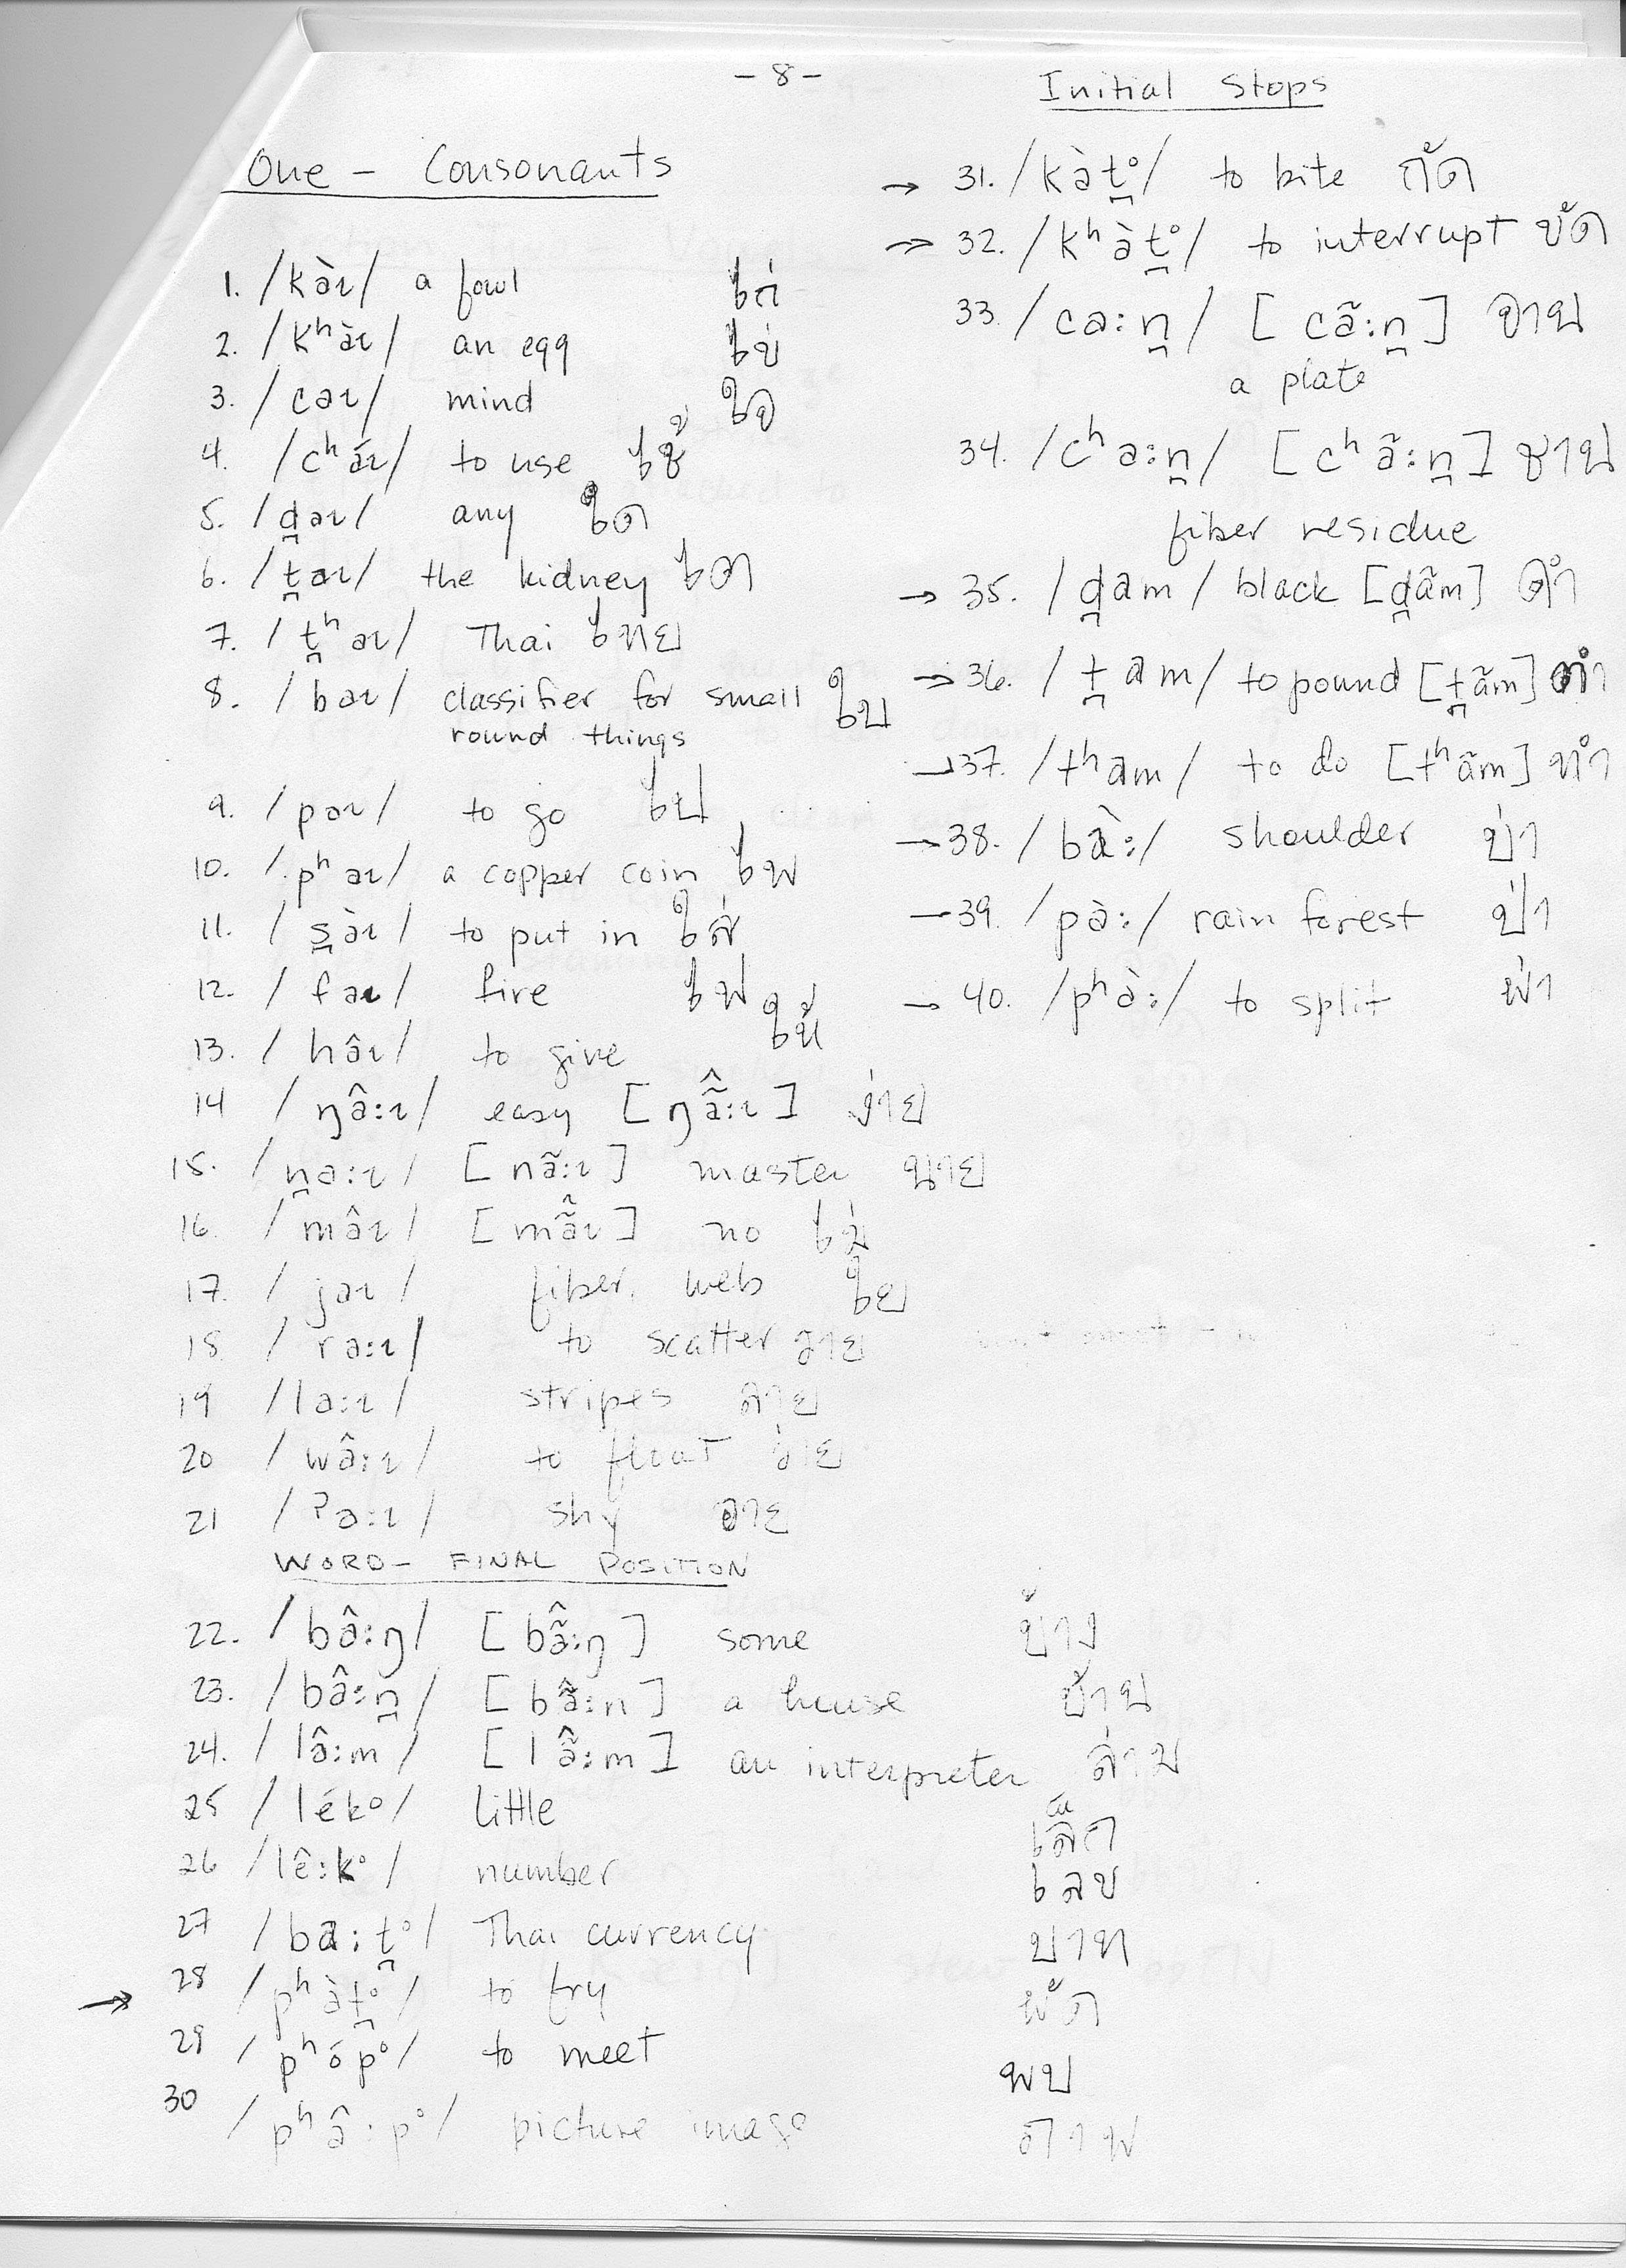 - 8 -
One - Consonants
1. /kàɪ/ a fowl ไก่
2. /kʰàɪ/ an egg ไข่
3. /caɪ/ mind ใจ
4. /cʰáɪ/ to use ใช้
5. /d̪aɪ/ any ใด
6. /t̪aɪ/ the kidney ไต
7. /t̪ʰaɪ/ Thai ไทย
8. /baɪ/ classifier for small ใบ
round things
9. /paɪ/ to go ไป
10. /pʰaɪ/ a copper coin ไพ
11. /s̪àɪ/ to put in ใส่
12. /faɪ/ fire ไฟ
13. /hâɪ/ to give ให้
14 /ŋâ:ɪ/ easy [ŋã̂:ɪ] ง่าย
15. /n̪a:ɪ/ [nã:ɪ] master นาย
16. /mâɪ/ [mã̂ɪ] no ไม่
17. /jaɪ/ fiber, web ใย
18 /ra:ɪ/ to scatter ราย
19 /la:ɪ/ stripes ลาย
20 /wâ:ɪ/ to float ว่าย
21 /ʔa:ɪ/ shy อาย
WORD-FINAL POSITION
22. /bâ:ŋ/ [bã̂:ŋ] some บ้าง
23. /bâ:n̪/ [bã̂:n] a house บ้าน
24. /lâ:m/ [lã̂:m] an interpreter ล่าม
25 /lék°/ little เล็ก
26 /lê:k°/ number เลข
27 /ba:t̪°/ Thai currency บาท
→ 28 /pʰàt̪°/ to fry ผัด
29 /pʰóp°/ to meet พบ
30 /pʰâ:p°/ picture image ภาพ
Initial Stops
→ 31. /kàt̪°/ to bite กัด
→ 32. /kʰàt̪°/ to interrupt ขัด
33. /ca:n̪/ [cã:n̪] จาน
a plate
34. /cʰa:n̪/ [cʰã:n̪] ชาน
fiber residue
→ 35. /d̪am/ black [d̪ãm] ดำ
→ 36. /t̪am/ to pound [t̪ãm] ตำ
→ 37. /tʰam/ to do [tʰãm] ทำ
→ 38. /bà:/ shoulder บ่า
→ 39. /pà:/ rain forest ป่า
→ 40. /pʰà:/ to split ผ่า